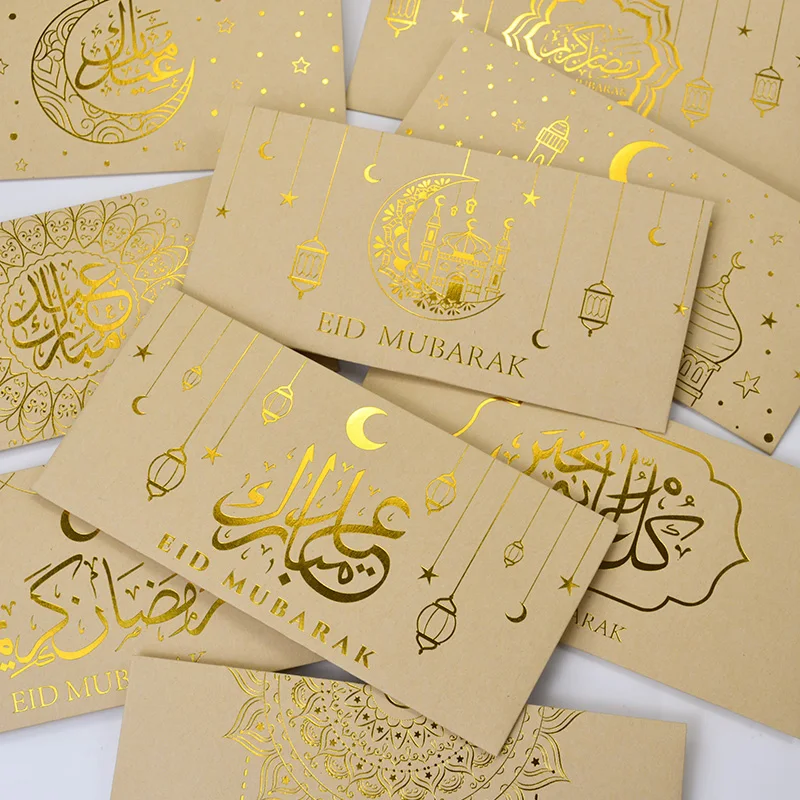 عيد مبارك
رمضان كريم
MUBARAK
EID MUBARAK
عيد مبارك
عيد مبارك
EID MUBARAK
كل عام وانتم بخير
ARAK
رمضان كريم
EID MUB